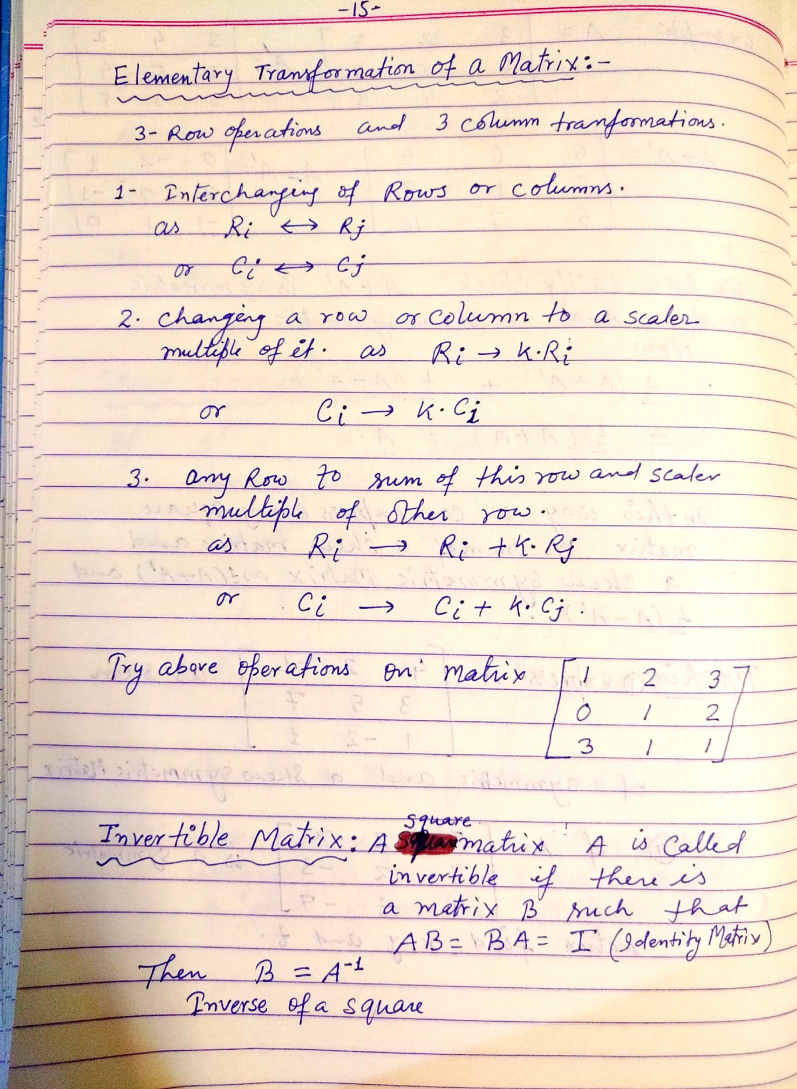 -15-
Elementary Transformation of a Matrix:-
3- Row operations and 3 column tranformations.
1- Interchanging of Rows or columns.
as Ri ↔ Rj
or Ci ↔ Cj
2. changing a row or column to a scaler
multiple of it. as Ri → K·Ri
or Ci → K·Ci
3. any Row to sum of this row and scaler
multiple of other row.
as Ri → Ri + K·Rj
or Ci → Ci + K·Cj.
Try above operations on matrix [1 2 3
0 1 2
3 1 1]
square
Invertible Matrix: A matrix A is called
invertible if there is
a matrix B such that
AB = BA = I (Identity Matrix)
Then B = A⁻¹
Inverse of a square